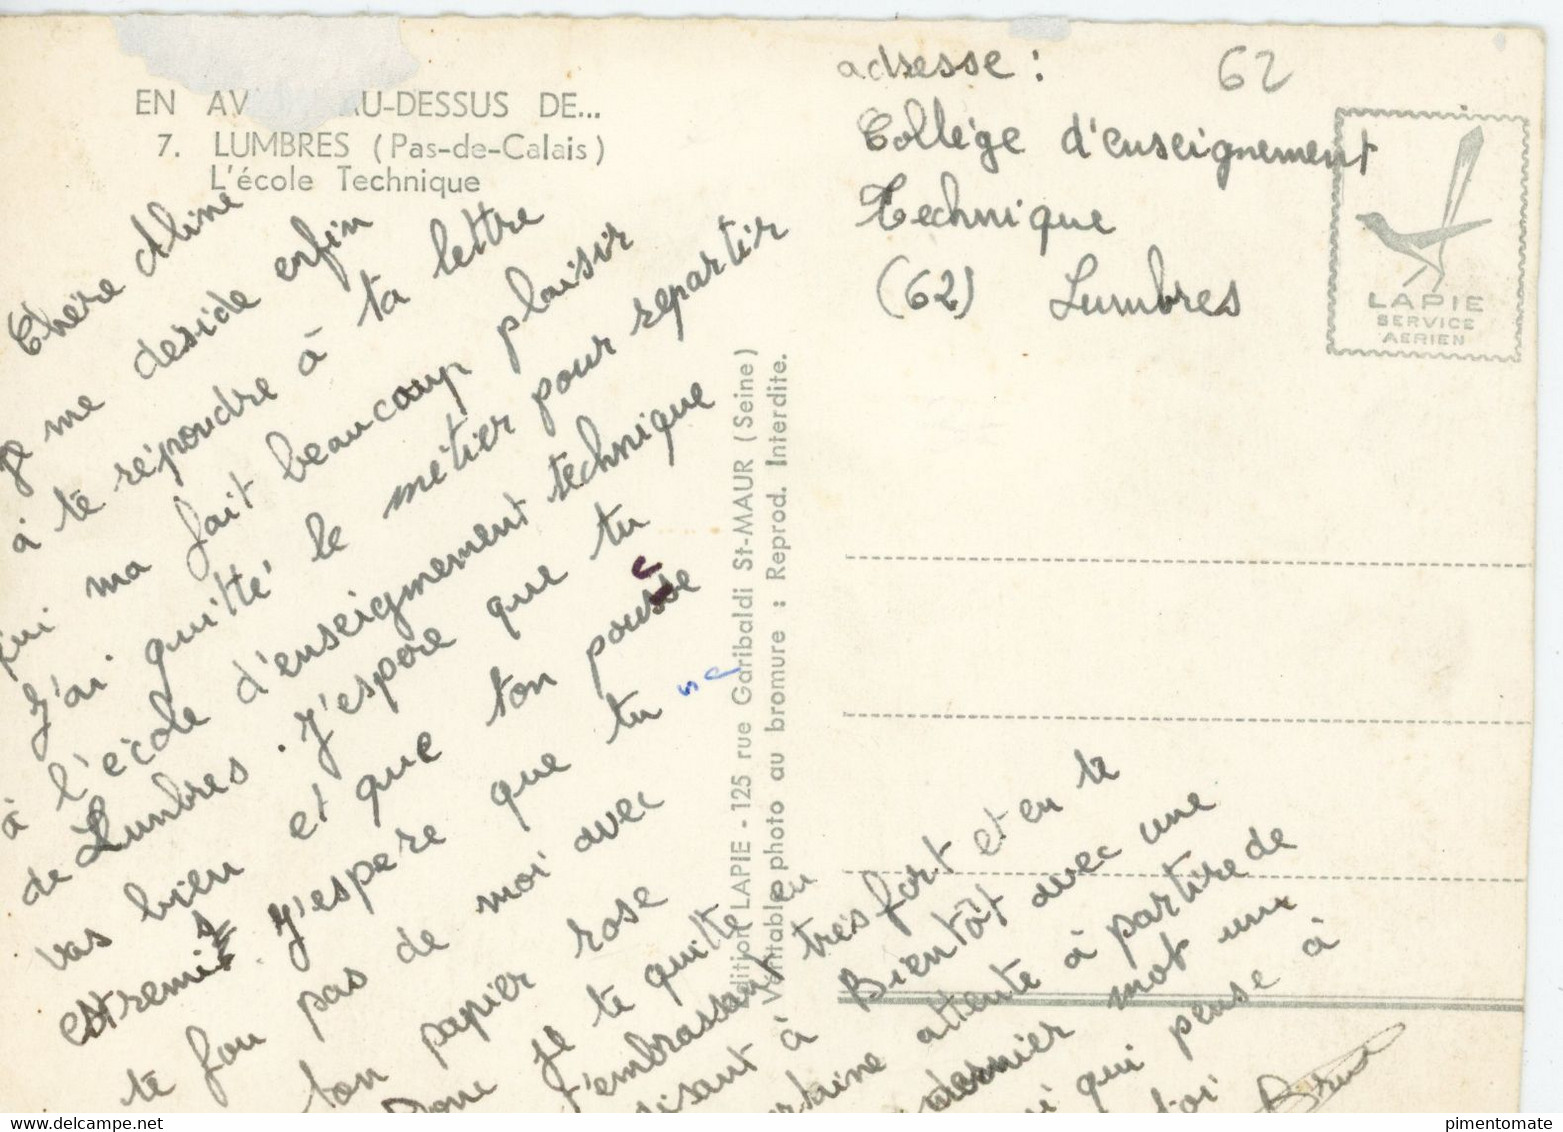 EN AV AU-DESSUS DE...
7. LUMBRES (Pas-de-Calais)
L'école Technique
adresse :
62
Collège d'enseignement
Technique
(62) Lumbres
LAPIE
SERVICE
AERIEN
Chère Aline
je me deside enfin
à te répondre à ta lettre
qui ma fait beaucoup plaisir
J'ai quitté le métier pour repartir
à l'école d'enseignement technique
de Lumbres. J'espere que tu
vas bien et que ton pousse
est remis. J'espere que tu ne
te fou pas de moi avec
ton papier rose
Donc je te quitte en
t'embrassant très fort et en te
disant à Bientôt avec une
certaine attente à partire de
dernier mot un
qui pense à
toi
dition LAPIE - 125 rue Garibaldi St-MAUR (Seine)
Véritable photo au bromure : Reprod. Interdite.
pimentomate